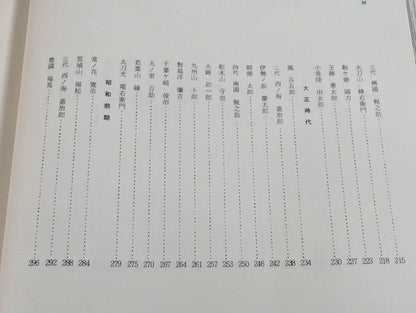 三代 両國 梶之助 215
太刀山 峰右衛門 218
駒ヶ嶽 國力 223
玉椿 憲太郎 227
小常陸 由太郎 230
大正時代
鳳 谷五郎 234
二代 西ノ海 嘉治郎 238
伊勢ノ浜 慶太郎 242
朝潮 太郎 246
四代 両國 梶之助 250
栃木山 守也 253
大錦 卯一郎 257
九州山 十郎 261
對馬洋 彌吉 264
千葉ヶ崎 俊治 267
大ノ里 万助 270
若葉山 鐘 275
太刀光 電右衛門 279
昭和前期
常ノ花 寛市 284
宮城山 福松 288
三代 西ノ海 嘉治郎 292
豊國 福馬 296